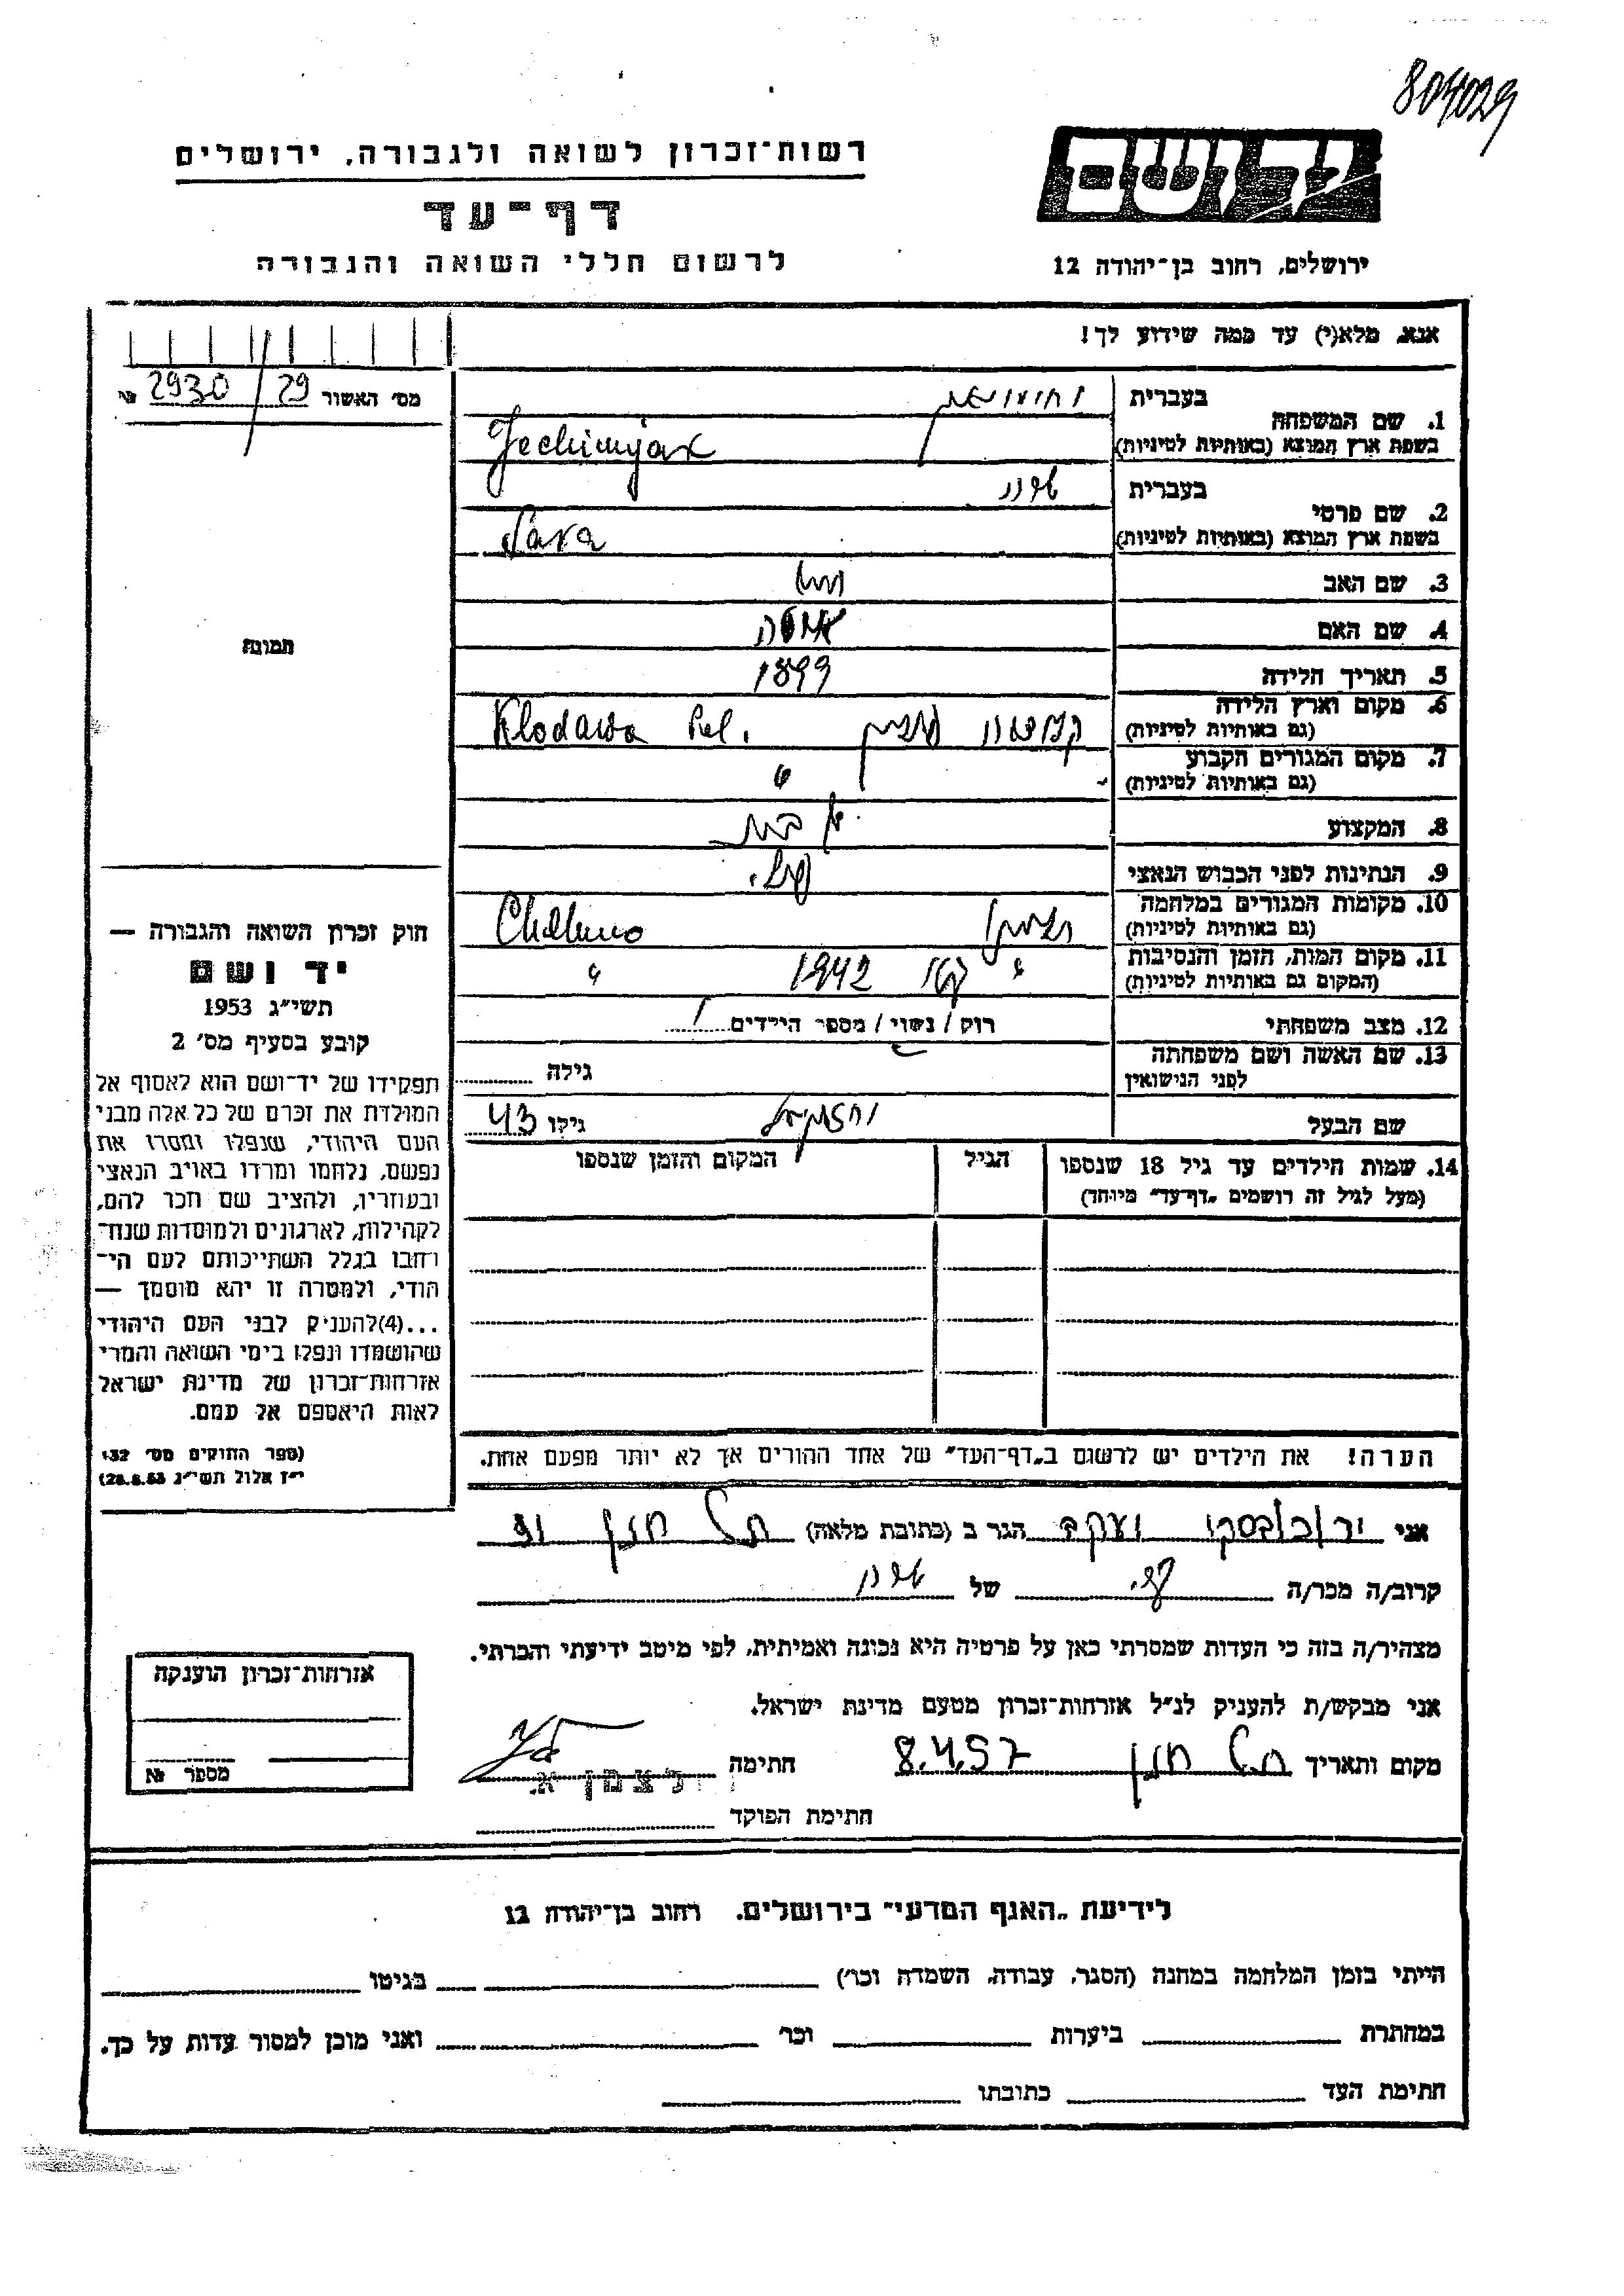 804029
יד ושם
רשות־זכרון לשואה ולגבורה, ירושלים
דף־עד
ירושלים, רחוב בן־יהודה 12
לרשום חללי השואה והגבורה
אנא, מלא(י) עד כמה שידוע לך!
מס׳ האשור 29 / 2930 №
בעברית
1. שם המשפחה
בשפת ארץ המוצא (באותיות לטיניות)
בעברית שרה
2. שם פרטי
בשפת ארץ המוצא (באותיות לטיניות) Sara
3. שם האב
4. שם האם
5. תאריך הלידה 1899
6. מקום וארץ הלידה
(גם באותיות לטיניות) Klodawa Pol.
7. מקום המגורים הקבוע
(גם באותיות לטיניות) "
8. המקצוע
9. הנתינות לפני הכבוש הנאצי פול.
10. מקומות המגורים במלחמה
(גם באותיות לטיניות) Chelmno
11. מקום המות, הזמן והנסיבות
(המקום גם באותיות לטיניות) " 1942 "
12. מצב משפחתי רווק / נשוי / מספר הילדים 1
13. שם האשה ושם משפחתה
לפני הנישואין גילה
שם הבעל יחזקאל גילו 43
14. שמות הילדים עד גיל 18 שנספו
(מעל לגיל זה רושמים „דף־עד״ מיוחד)
הגיל
המקום והזמן שנספו
הערה! את הילדים יש לרשום ב„דף־העד״ של אחד ההורים אך לא יותר מפעם אחת.
תמונה
חוק זכרון השואה והגבורה —
יד ושם
תשי״ג 1953
קובע בסעיף מס׳ 2
תפקידו של יד־ושם הוא לאסוף אל
המולדת את זכרם של כל אלה מבני
העם היהודי, שנפלו ומסרו את
נפשם, נלחמו ומרדו באויב הנאצי
ובעוזריו, ולהציב שם וזכר להם,
לקהילות, לארגונים ולמוסדות שנח־
רבו בגלל השתייכותם לעם הי־
הודי, ולמטרה זו יהא מוסמך —
...(4)להעניק לבני העם היהודי
שהושמדו ונפלו בימי השואה והמרי
אזרחות־זכרון של מדינת ישראל
לאות היאספם אל עמם.
(ספר החוקים מס׳ 132,
י״ז אלול תשי״ג 28.8.53)
אני יעקב הגר ב (כתובת מלאה) תל חנן
קרוב/ה מכר/ה של שרה
מצהיר/ה בזה כי העדות שמסרתי כאן על פרטיה היא נכונה ואמיתית, לפי מיטב ידיעתי והכרתי.
אני מבקש/ת להעניק לנ״ל אזרחות־זכרון מטעם מדינת ישראל.
מקום ותאריך תל חנן 8.4.57 חתימה
חתימת הפוקד
אזרחות־זכרון הוענקה
מספר №
לידיעת „האגף המדעי״ בירושלים, רחוב בן־יהודה 12
הייתי בזמן המלחמה במחנה (הסגר, עבודה, השמדה וכו׳) בגיטו
במחתרת ביערות וכו׳ ואני מוכן למסור עדות על כך.
חתימת העד כתובתו